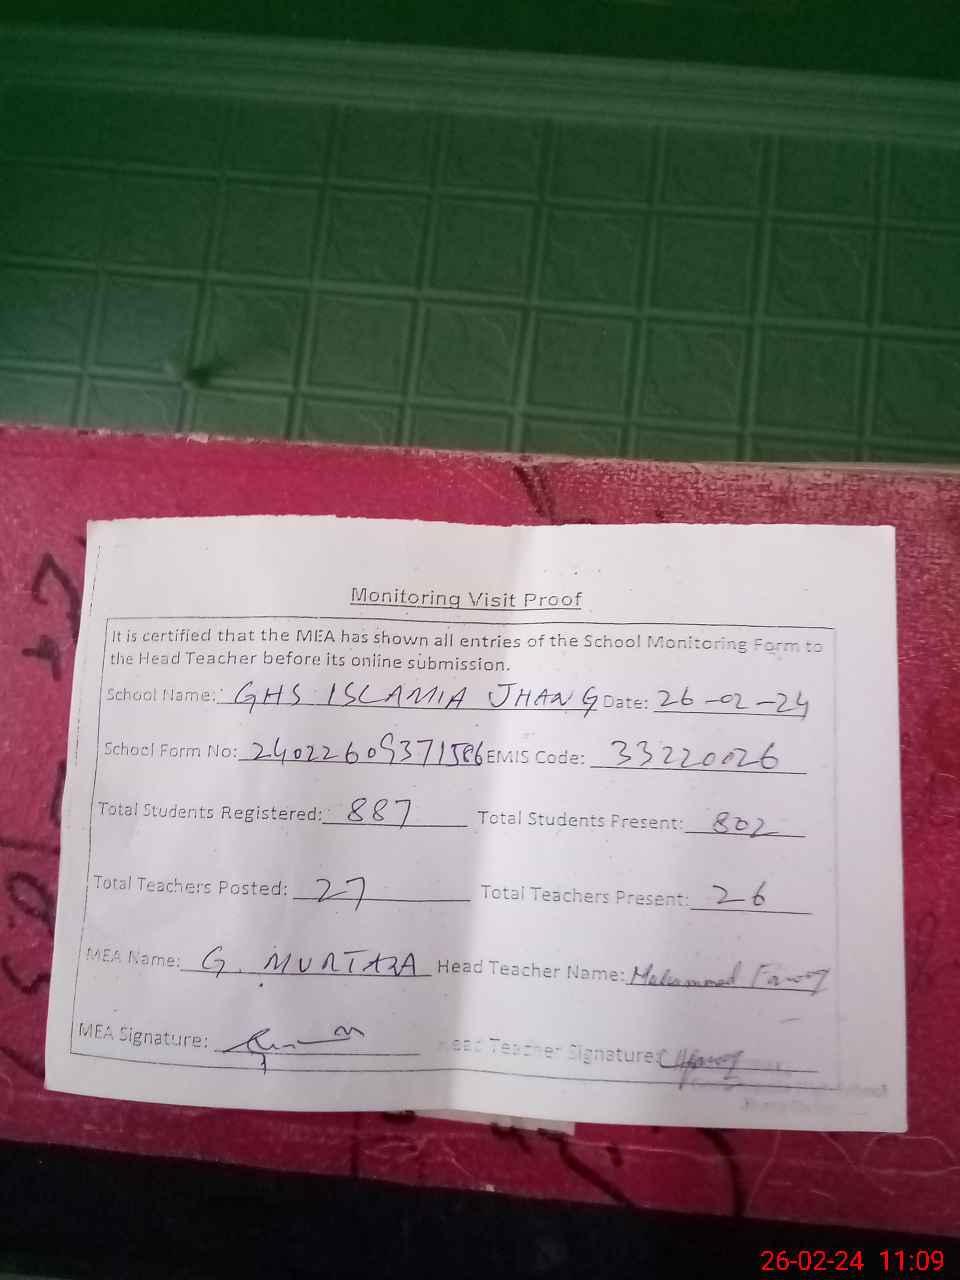 Monitoring Visit Proof
It is certified that the MEA has shown all entries of the School Monitoring Form to
the Head Teacher before its online submission.
School Name: GHS ISLAMIA JHANG Date: 26-02-24
School Form No: EMIS Code: 33220026
Total Students Registered: 887 Total Students Present: 802
Total Teachers Posted: 27 Total Teachers Present: 26
MEA Name: G. MURTAZA Head Teacher Name: Muhammad Farooq
MEA Signature: Head Teacher Signature:
26-02-24 11:09